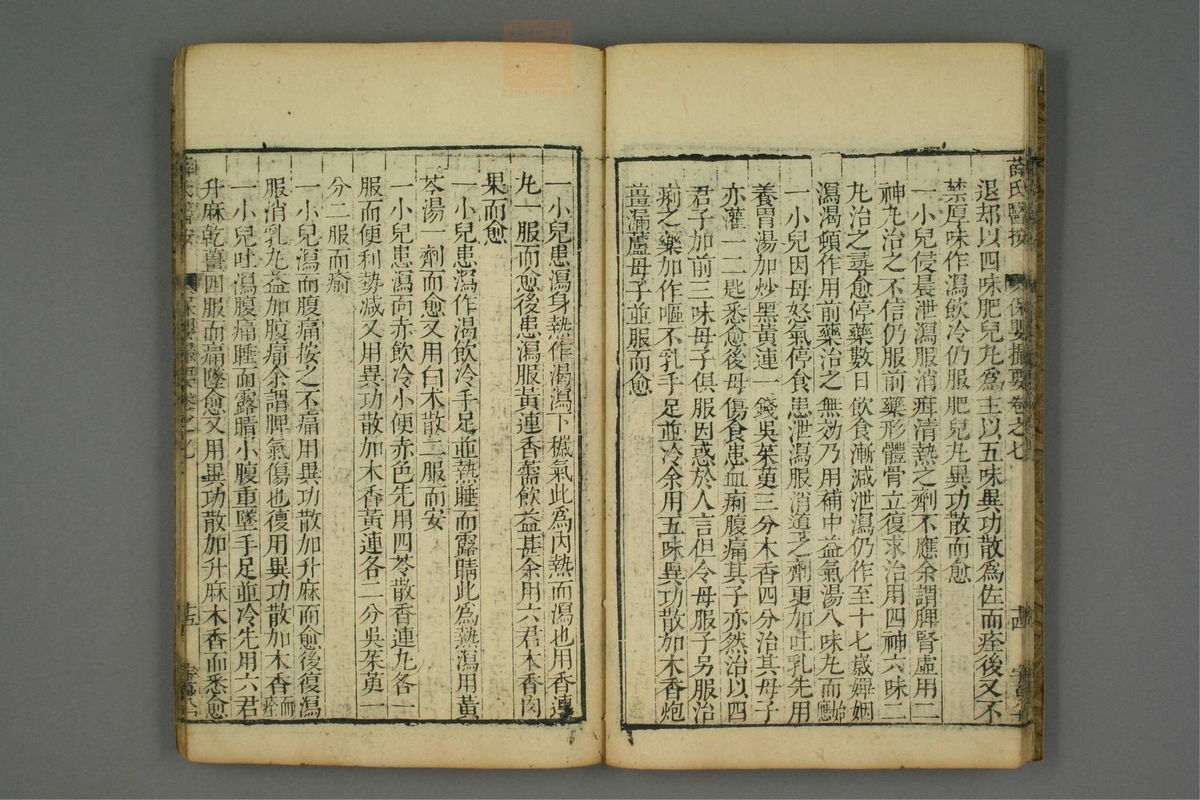 薛氏醫按 保嬰撮要卷之七 十四
退却以四味肥兒丸爲主以五味異功散爲佐而痊後又不
禁厚味作瀉飲冷仍服肥兒丸異功散而愈
一小兒侵晨泄瀉服消疳清熱之劑不應余謂脾腎虛用二
神丸治之不信仍服前藥形體骨立復求治用四神六味二
丸治之尋愈停藥數日飲食漸減泄瀉仍作至十七歲婢姻
瀉渴頓作用前藥治之無効乃用補中益氣湯八味丸而始獲
一小兒因母怒氣停食患泄瀉服消導之劑更加吐乳先用
養胃湯加炒黑黃連一錢吳茱萸三分木香四分治其母子
亦灌一二匙悉愈後母傷食患血痢腹痛其子亦然治以四
君子加前三味母子俱服因惑於人言但令母服子另服治
痢之藥加作嘔不乳手足並冷余用五味異功散加木香炮
薑漏蘆母子並服而愈
一小兒患瀉身熱作渴瀉下穢氣此爲内熱而瀉也用香連
丸一服而愈後患瀉服黃連香薷飲益甚余用六君木香肉
果而愈
一小兒患瀉作渴飲冷手足並熱睡而露睛此爲熱瀉用黃
芩湯一劑而愈又用白朮散二服而安
一小兒患瀉面赤飲冷小便赤色先用四苓散香連丸各一
服而便利勢減又用異功散加木香黃連各一分吳茱萸一
分二服而痊
一小兒瀉而腹痛按之不痛用異功散加升麻而愈後復瀉
服消乳丸益加腹痛余謂脾氣傷也復用異功散加木香而痊
一小兒吐瀉腹痛睡而露睛小腹重墜手足並冷先用六君
升麻乾薑四服而痛墜愈又用異功散加升麻木香而悉愈
薛氏醫按 保嬰撮要卷之七 十五